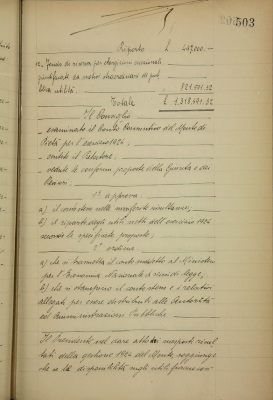 503
Riporto £ 497.000.-
12. Fondo di riserva per erogazioni eccezionali
giustificate da motivi straordinari di pub
blica utilità 821.691.32
Totale £ 1.318.691.32
Il Consiglio
- esaminato il Conto Consuntivo del Monte di
Pietà per l'esercizio 1926;
- sentito il Relatore;
- vedute le conformi proposte della Giunta e dei
Sindaci;
1° approva
a) il conto stesso nelle risultanze
b) il riparto degli utili netti dell'esercizio 1926
secondo le specificate proposte;
2° ordina
a) che si trasmetta il conto suddetto al Ministero
per l'Economia Nazionale a sensi di legge;
b) che si stampino il conto stesso e i relativi
allegati per essere distribuiti alle Autorità
ed Amministrazioni Pubbliche.
Il Presidente nel dare atto dei risul
tati della gestione 1926 del Monte soggiunge
che a disponibilità negli utili